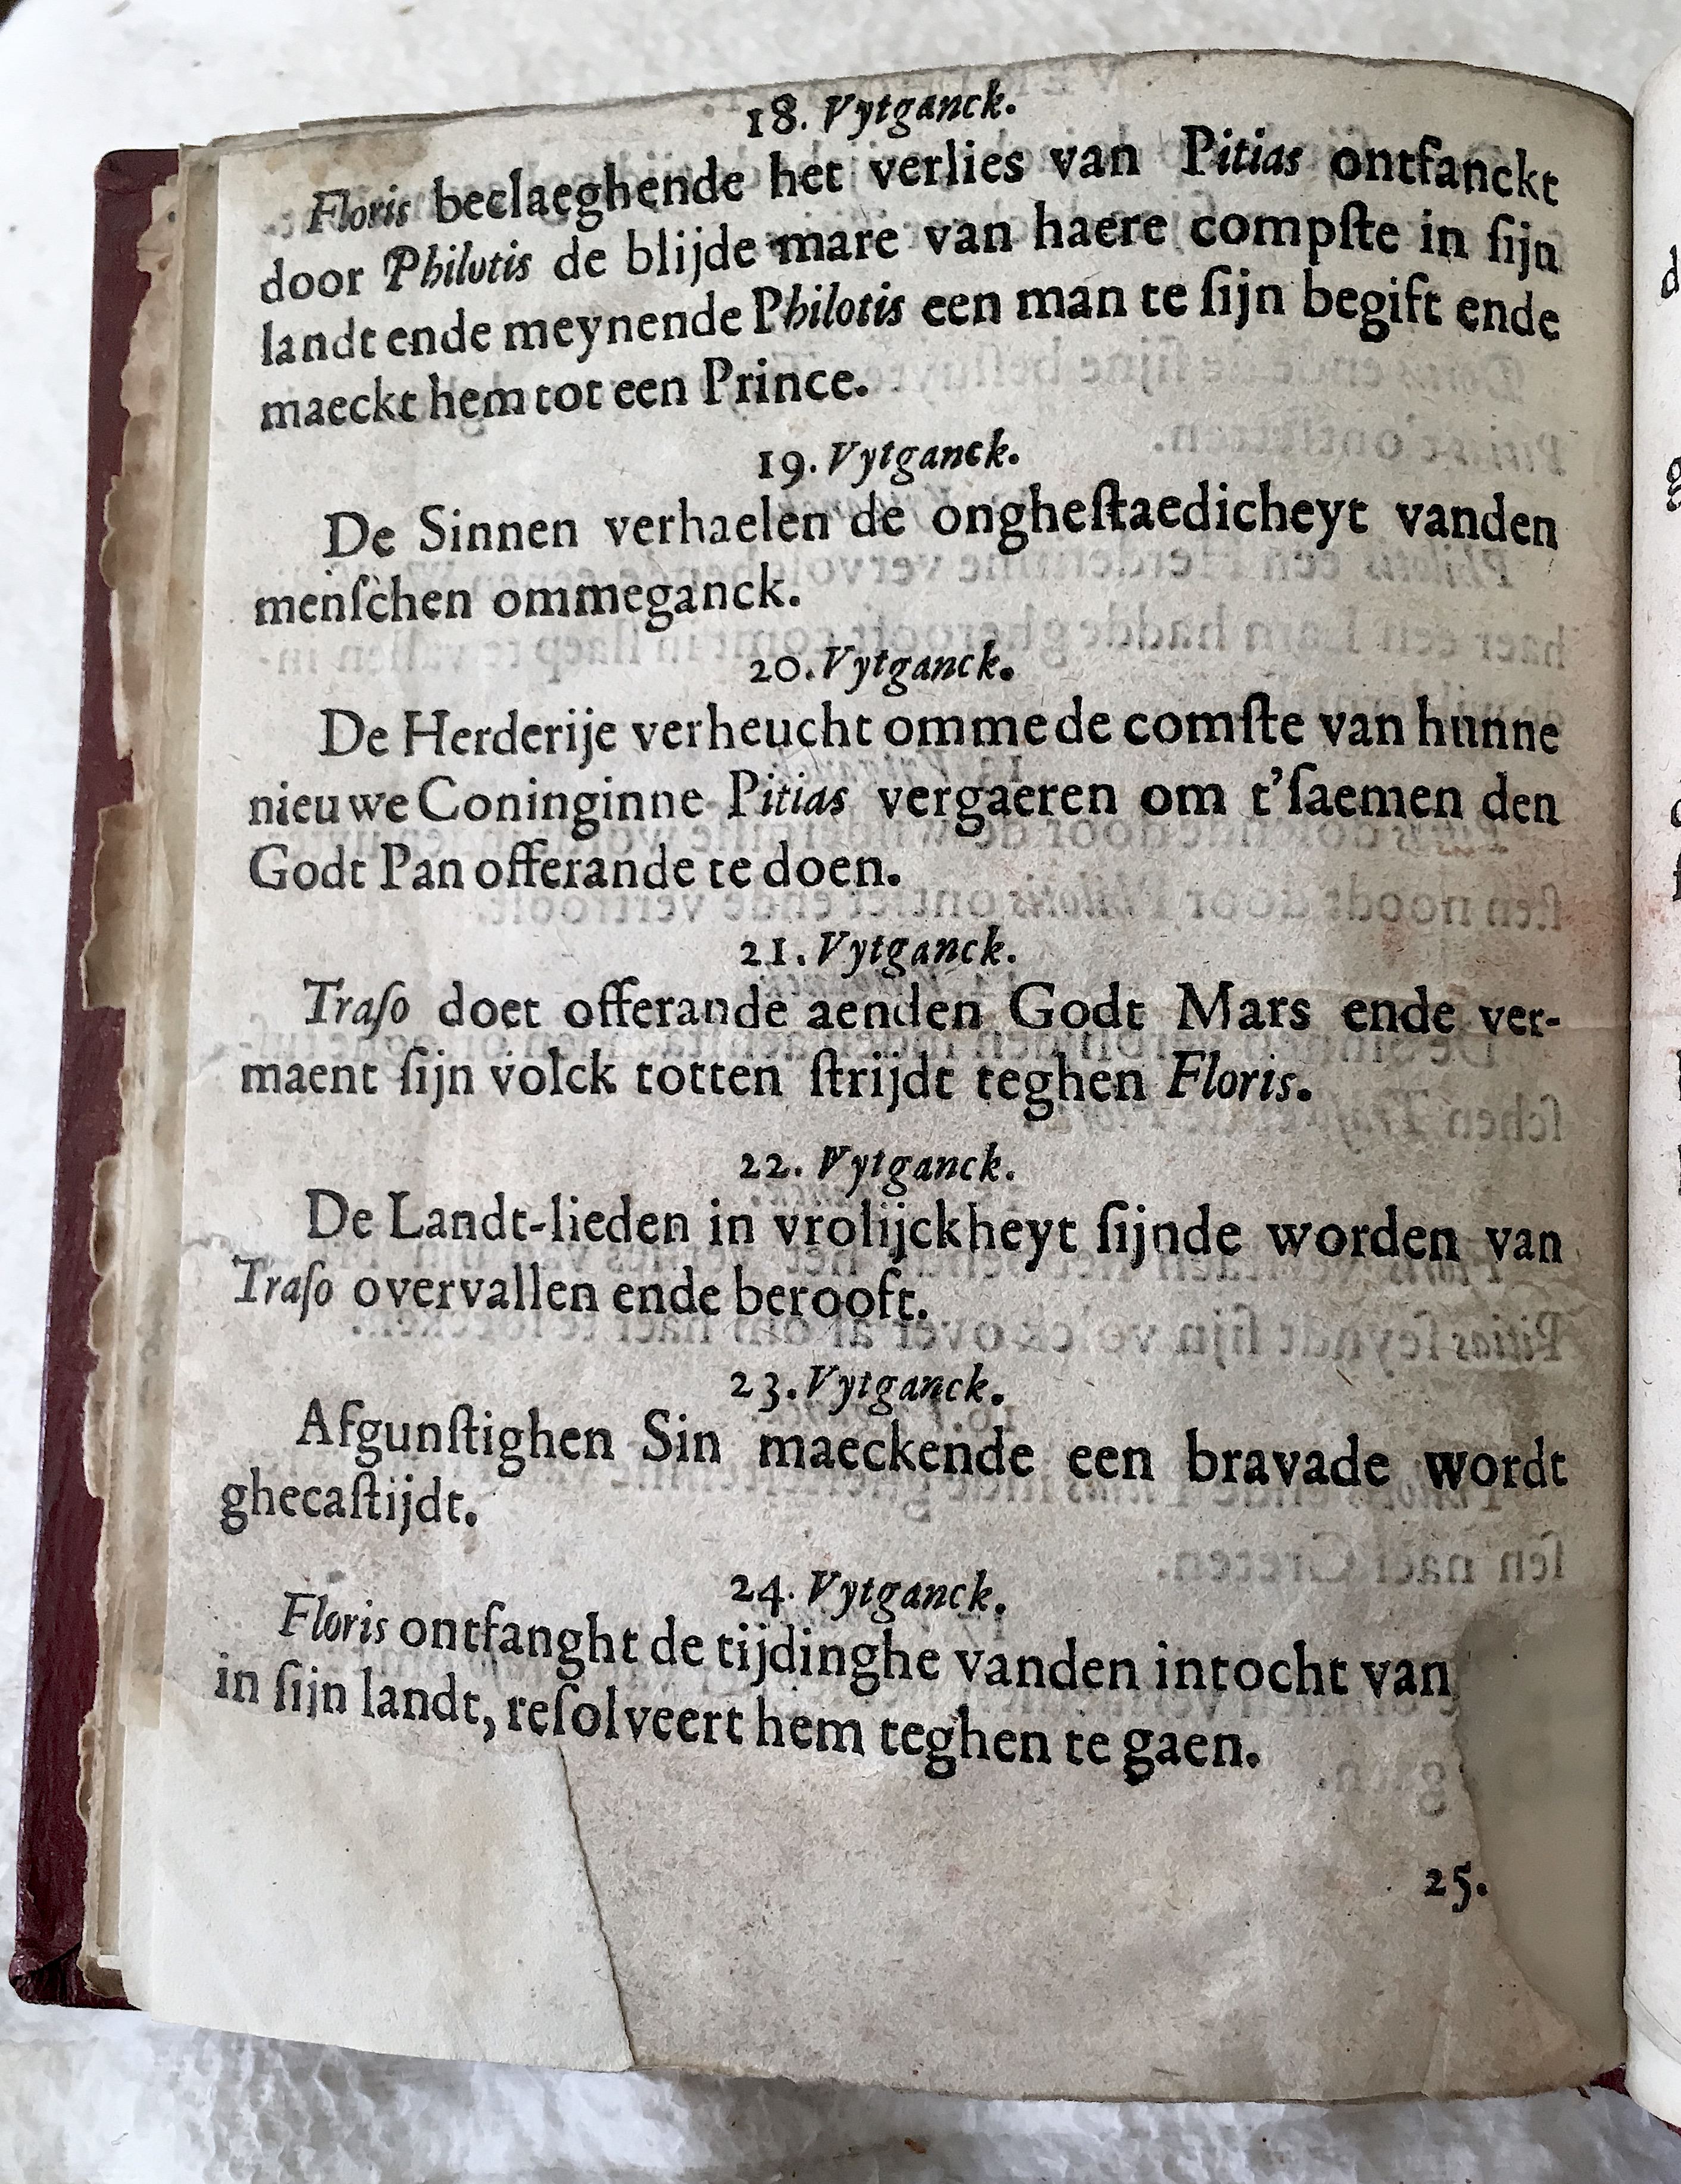 18. Vytganck.
Floris beclaeghende het verlies van Pitias ontfanckt
door Philotis de blijde mare van haere compſte in ſijn
landt ende meynende Philotis een man te ſijn begift ende
maeckt hem tot een Prince.
19. Vytganck.
De Sinnen verhaelen de ongheſtaedicheyt vanden
menſchen ommeganck.
20. Vytganck.
De Herderije verheucht omme de comſte van hunne
nieuwe Coninginne Pitias vergaeren om t'ſaemen den
Godt Pan offerande te doen.
21. Vytganck.
Traſo doet offerande aenden Godt Mars ende ver-
maent ſijn volck totten ſtrijdt teghen Floris.
22. Vytganck.
De Landt-lieden in vrolijckheyt ſijnde worden van
Traſo overvallen ende berooft.
23. Vytganck.
Afgunſtighen Sin maeckende een bravade wordt
ghecaſtijdt.
24. Vytganck.
Floris ontfanght de tijdinghe vanden intocht van
in ſijn landt, reſolveert hem teghen te gaen.
25.